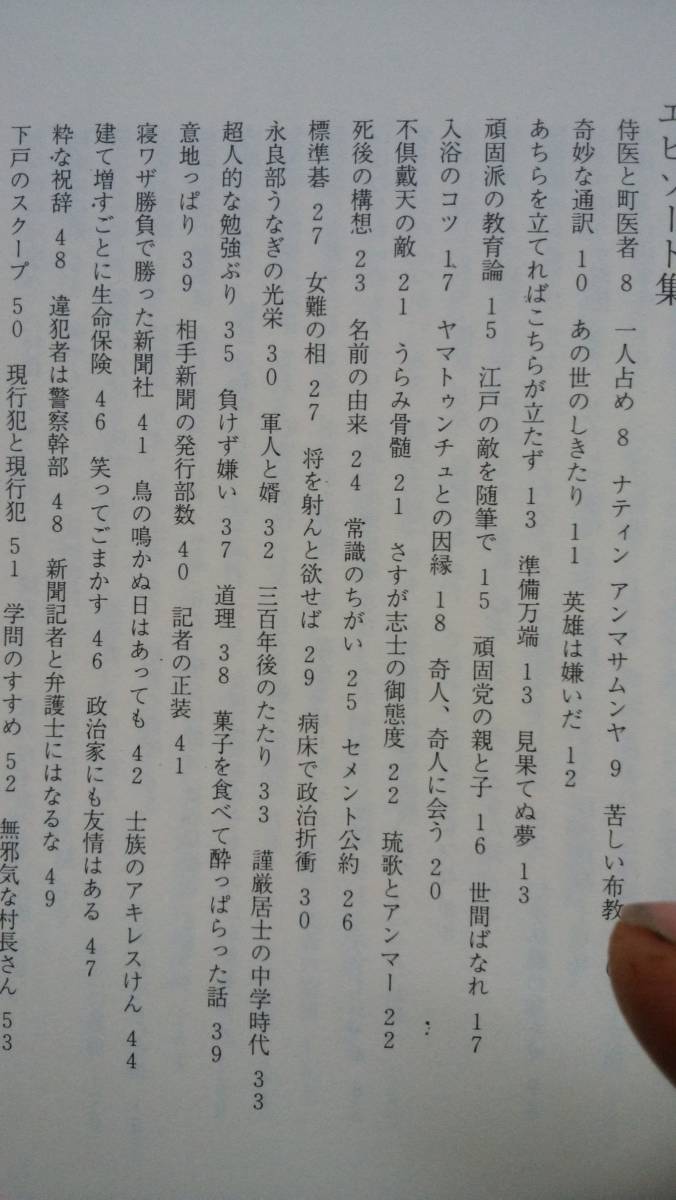 エピソード集
侍医と町医者 8 一人占め 8 ナティン アンマサムンヤ 9 苦しい布教
奇妙な通訳 10 あの世のしきたり 11 英雄は嫌いだ 12
あちらを立てればこちらが立たず 13 準備万端 13 見果てぬ夢 13
頑固派の教育論 15 江戸の敵を随筆で 15 頑固党の親と子 16 世間ばなれ 17
入浴のコツ 17 ヤマトゥンチュとの因縁 18 奇人、奇人に会う 20
不倶戴天の敵 21 うらみ骨髄 21 さすが志士の御態度 22 琉歌とアンマー 22
死後の構想 23 名前の由来 24 常識のちがい 25 セメント公約 26
標準碁 27 女難の相 27 将を射んと欲せば 29 病床で政治折衝 30
永良部うなぎの光栄 30 軍人と婿 32 三百年後のたたり 33 謹厳居士の中学時代 33
超人的な勉強ぶり 35 負けず嫌い 37 道理 38 菓子を食べて酔っぱらった話 39
意地っぱり 39 相手新聞の発行部数 40 記者の正装 41
寝ワザ勝負で勝った新聞社 41 鳥の鳴かぬ日はあっても 42 士族のアキレスけん 44
建て増すごとに生命保険 46 笑ってごまかす 46 政治家にも友情はある 47
粋な祝辞 48 違犯者は警察幹部 48 新聞記者と弁護士にはなるな 49
下戸のスクープ 50 現行犯と現行犯 51 学問のすすめ 52 無邪気な村長さん 53